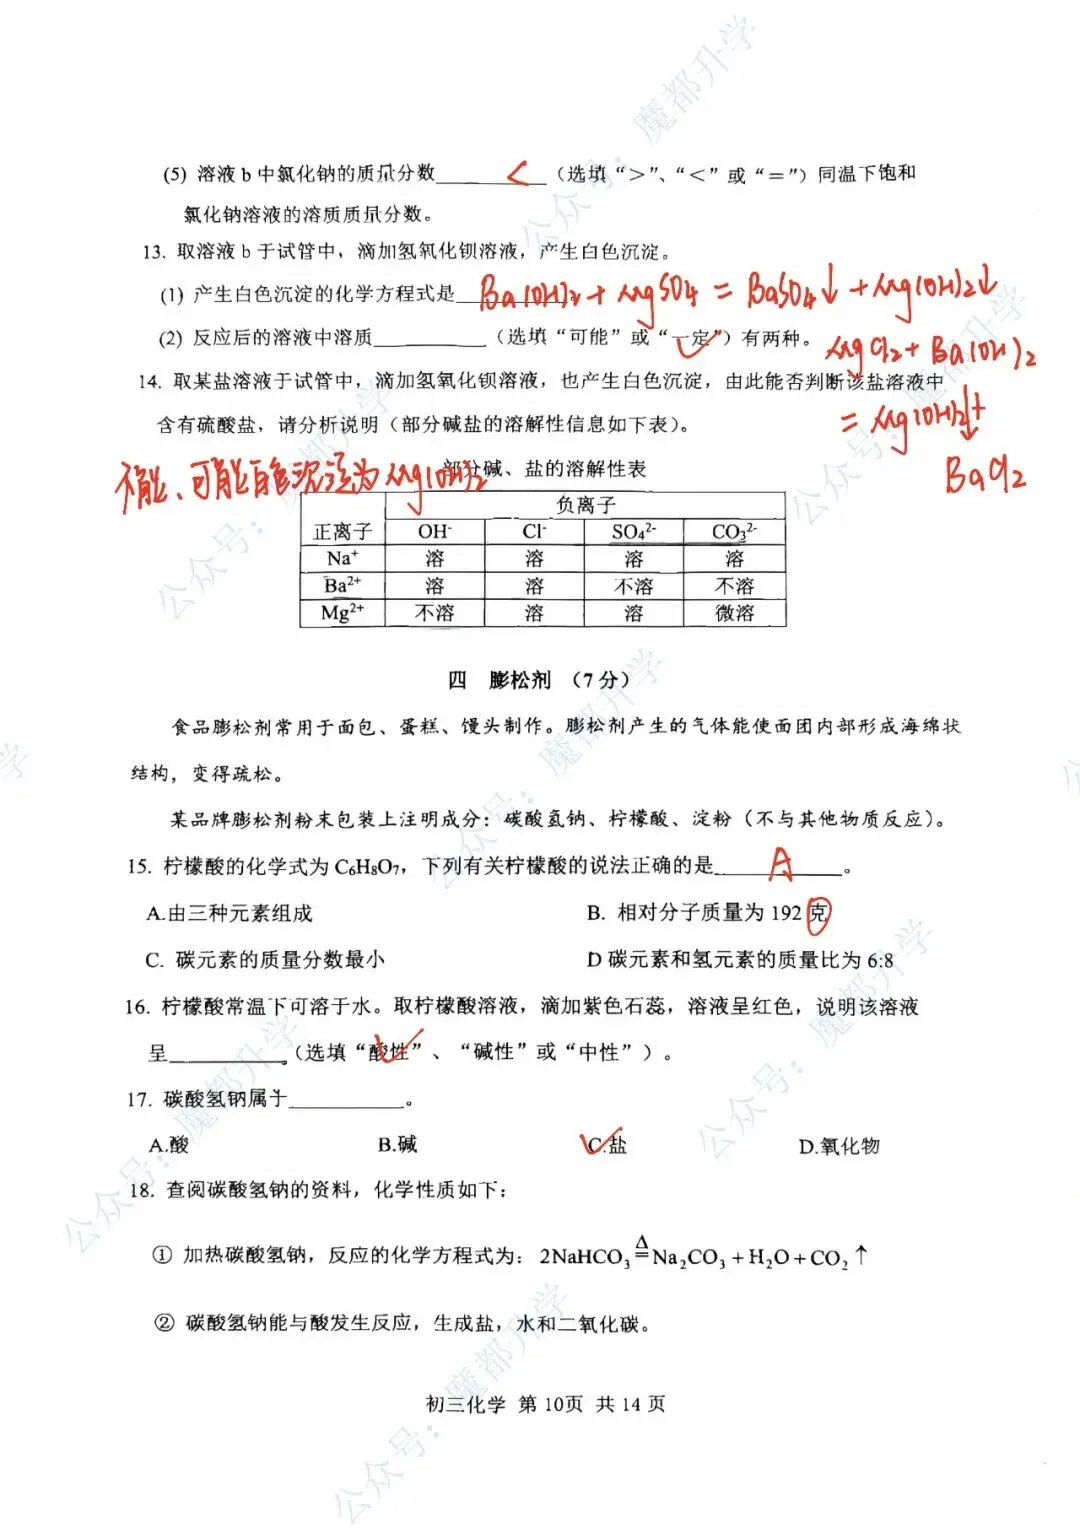 (5) 溶液 b 中氯化钠的质量分数 < （选填“>”、“<”或“=”）同温下饱和
氯化钠溶液的溶质质量分数。
13. 取溶液 b 于试管中，滴加氢氧化钡溶液，产生白色沉淀。
(1) 产生白色沉淀的化学方程式是 Ba(OH)₂ + MgSO₄ = BaSO₄↓ + Mg(OH)₂↓
(2) 反应后的溶液中溶质______（选填“可能”或“一定”）有两种。
MgCl₂ + Ba(OH)₂
= Mg(OH)₂↓ +
BaCl₂
14. 取某盐溶液于试管中，滴加氢氧化钡溶液，也产生白色沉淀，由此能否判断该盐溶液中
含有硫酸盐，请分析说明（部分碱盐的溶解性信息如下表）。
不能、可能白色沉淀为 Mg(OH)₂
部分碱、盐的溶解性表
负离子
正离子 OH⁻ Cl⁻ SO₄²⁻ CO₃²⁻
Na⁺ 溶 溶 溶 溶
Ba²⁺ 溶 溶 不溶 不溶
Mg²⁺ 不溶 溶 溶 微溶
四 膨松剂 （7 分）
食品膨松剂常用于面包、蛋糕、馒头制作。膨松剂产生的气体能使面团内部形成海绵状
结构，变得疏松。
某品牌膨松剂粉末包装上注明成分：碳酸氢钠、柠檬酸、淀粉（不与其他物质反应）。
15. 柠檬酸的化学式为 C₆H₈O₇，下列有关柠檬酸的说法正确的是 A 。
A.由三种元素组成 B. 相对分子质量为 192 克
C. 碳元素的质量分数最小 D 碳元素和氢元素的质量比为 6:8
16. 柠檬酸常温下可溶于水。取柠檬酸溶液，滴加紫色石蕊，溶液呈红色，说明该溶液
呈______（选填“酸性”、“碱性”或“中性”）。
17. 碳酸氢钠属于______。
A.酸 B.碱 C.盐 D.氧化物
18. 查阅碳酸氢钠的资料，化学性质如下：
① 加热碳酸氢钠，反应的化学方程式为：2NaHCO₃ ≜ Na₂CO₃ + H₂O + CO₂↑
② 碳酸氢钠能与酸发生反应，生成盐，水和二氧化碳。
初三化学 第 10页 共 14 页
公众号：魔都升学